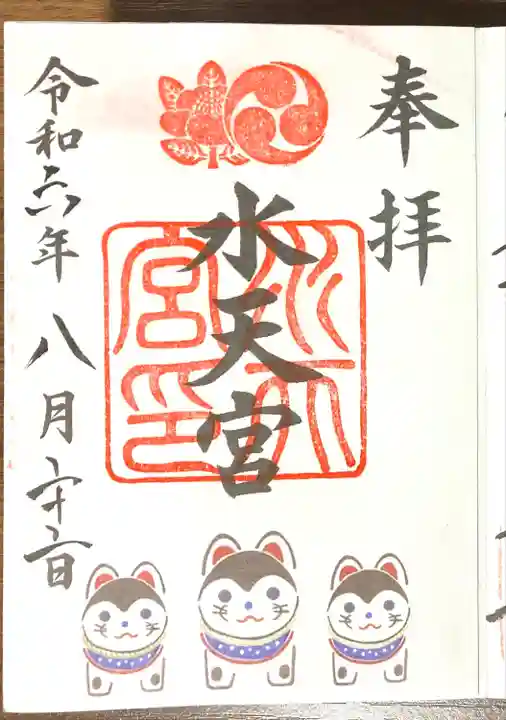 奉拝
水天宮
水天宮印
令和六年 八月 二十二日